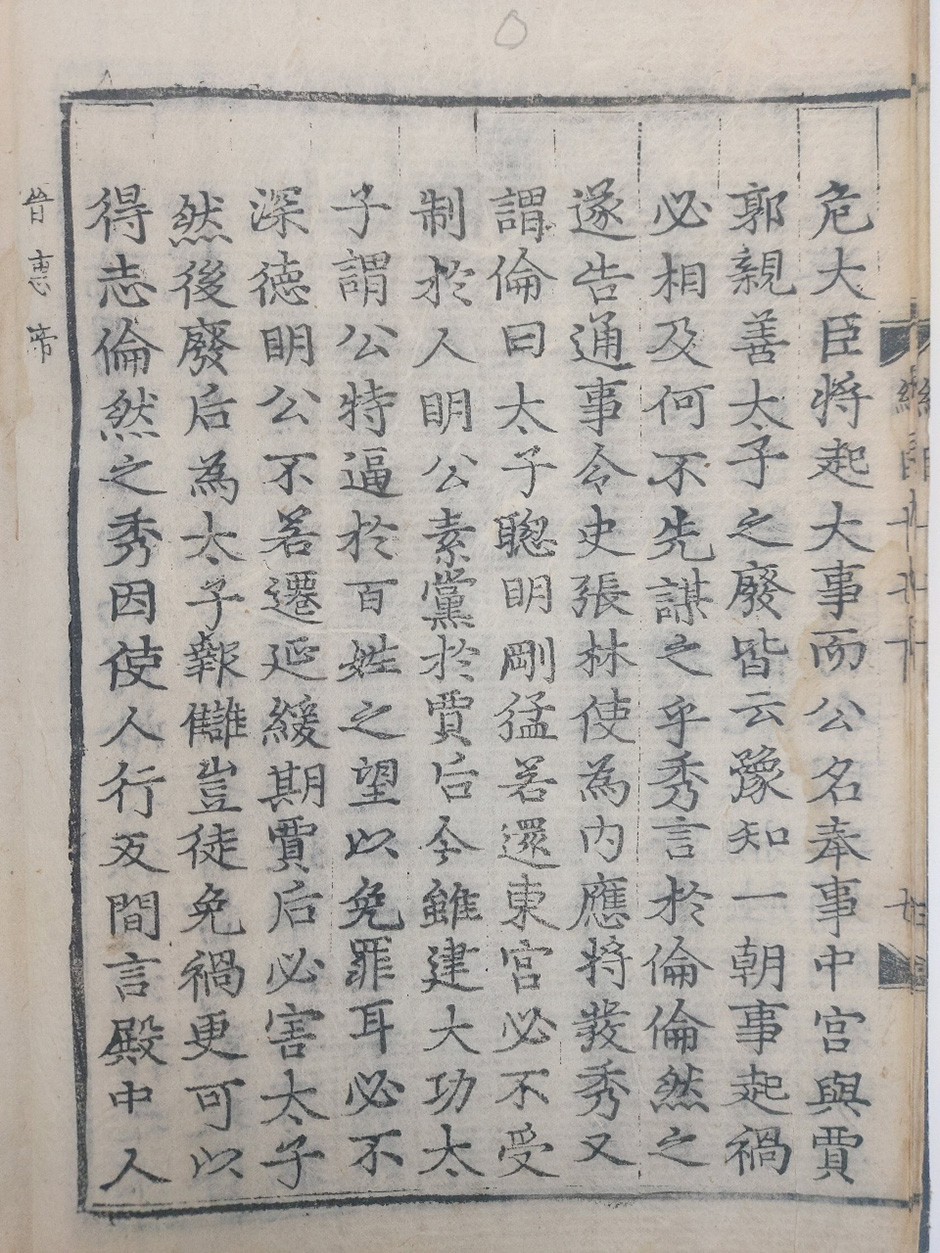 危大臣將起大事而公名奉事中宮與賈
郭親善太子之廢皆云豫知一朝事起禍
必相及何不先謀之乎秀言於倫倫然之
遂告通事令史張林使為內應將發秀又
謂倫曰太子聰明剛猛若還東宮必不受
制於人明公素黨於賈后今雖建大功太
子謂公特逼於百姓之望以免罪耳必不
深德明公不若遷延緩期賈后必害太子
然後廢后為太子報讎豈徒免禍更可以
得志倫然之秀因使人行反間言殿中人
晉惠帝